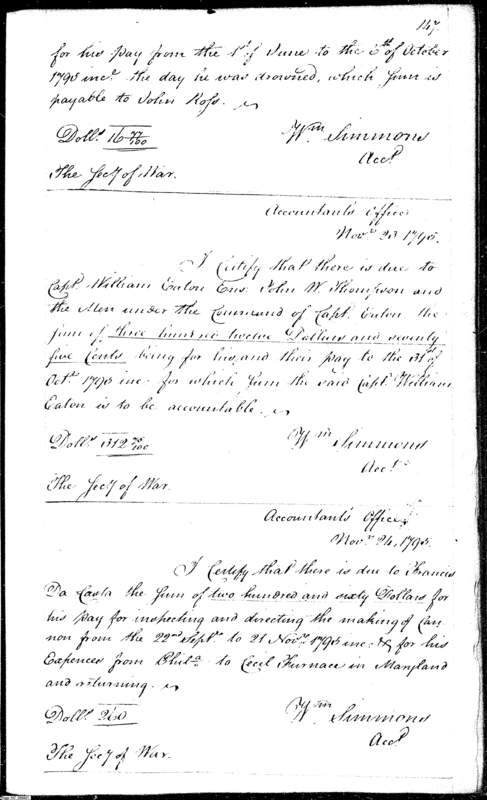 147.
for his pay from the 1st of June to the 6th of October
1795 incl. the day he was drowned, which sum is
payable to John Ross.
Dolls. 16 77/100
Wm Simmons
Acct.
The Secy of War.
Accountant's Office
Novr 23 1795.
I Certify that there is due to
Capt. William Eaton Ens. John W. Thompson and
the Men under the Command of Capt. Eaton the
sum of three hundred twelve Dollars and seventy
five Cents being for his and their pay to the 31st of
Octr. 1795 inc. for which sum the said Capt. William
Eaton is to be accountable.
Dolls. 312 75/100
Wm Simmons
Acct.
The Secy of War.
Accountant's Office
Novr 24, 1795.
I Certify that there is due to Francis
Da Casta the sum of two hundred and sixty Dollars for
his pay for inspecting and directing the making of Can
non from the 22nd Septr. to 21 Novr. 1795 inc. & for his
Expences from Phila. to Cecil Furnace in Maryland
and returning.
Dolls. 260
Wm Simmons
Acct.
The Secy of War.